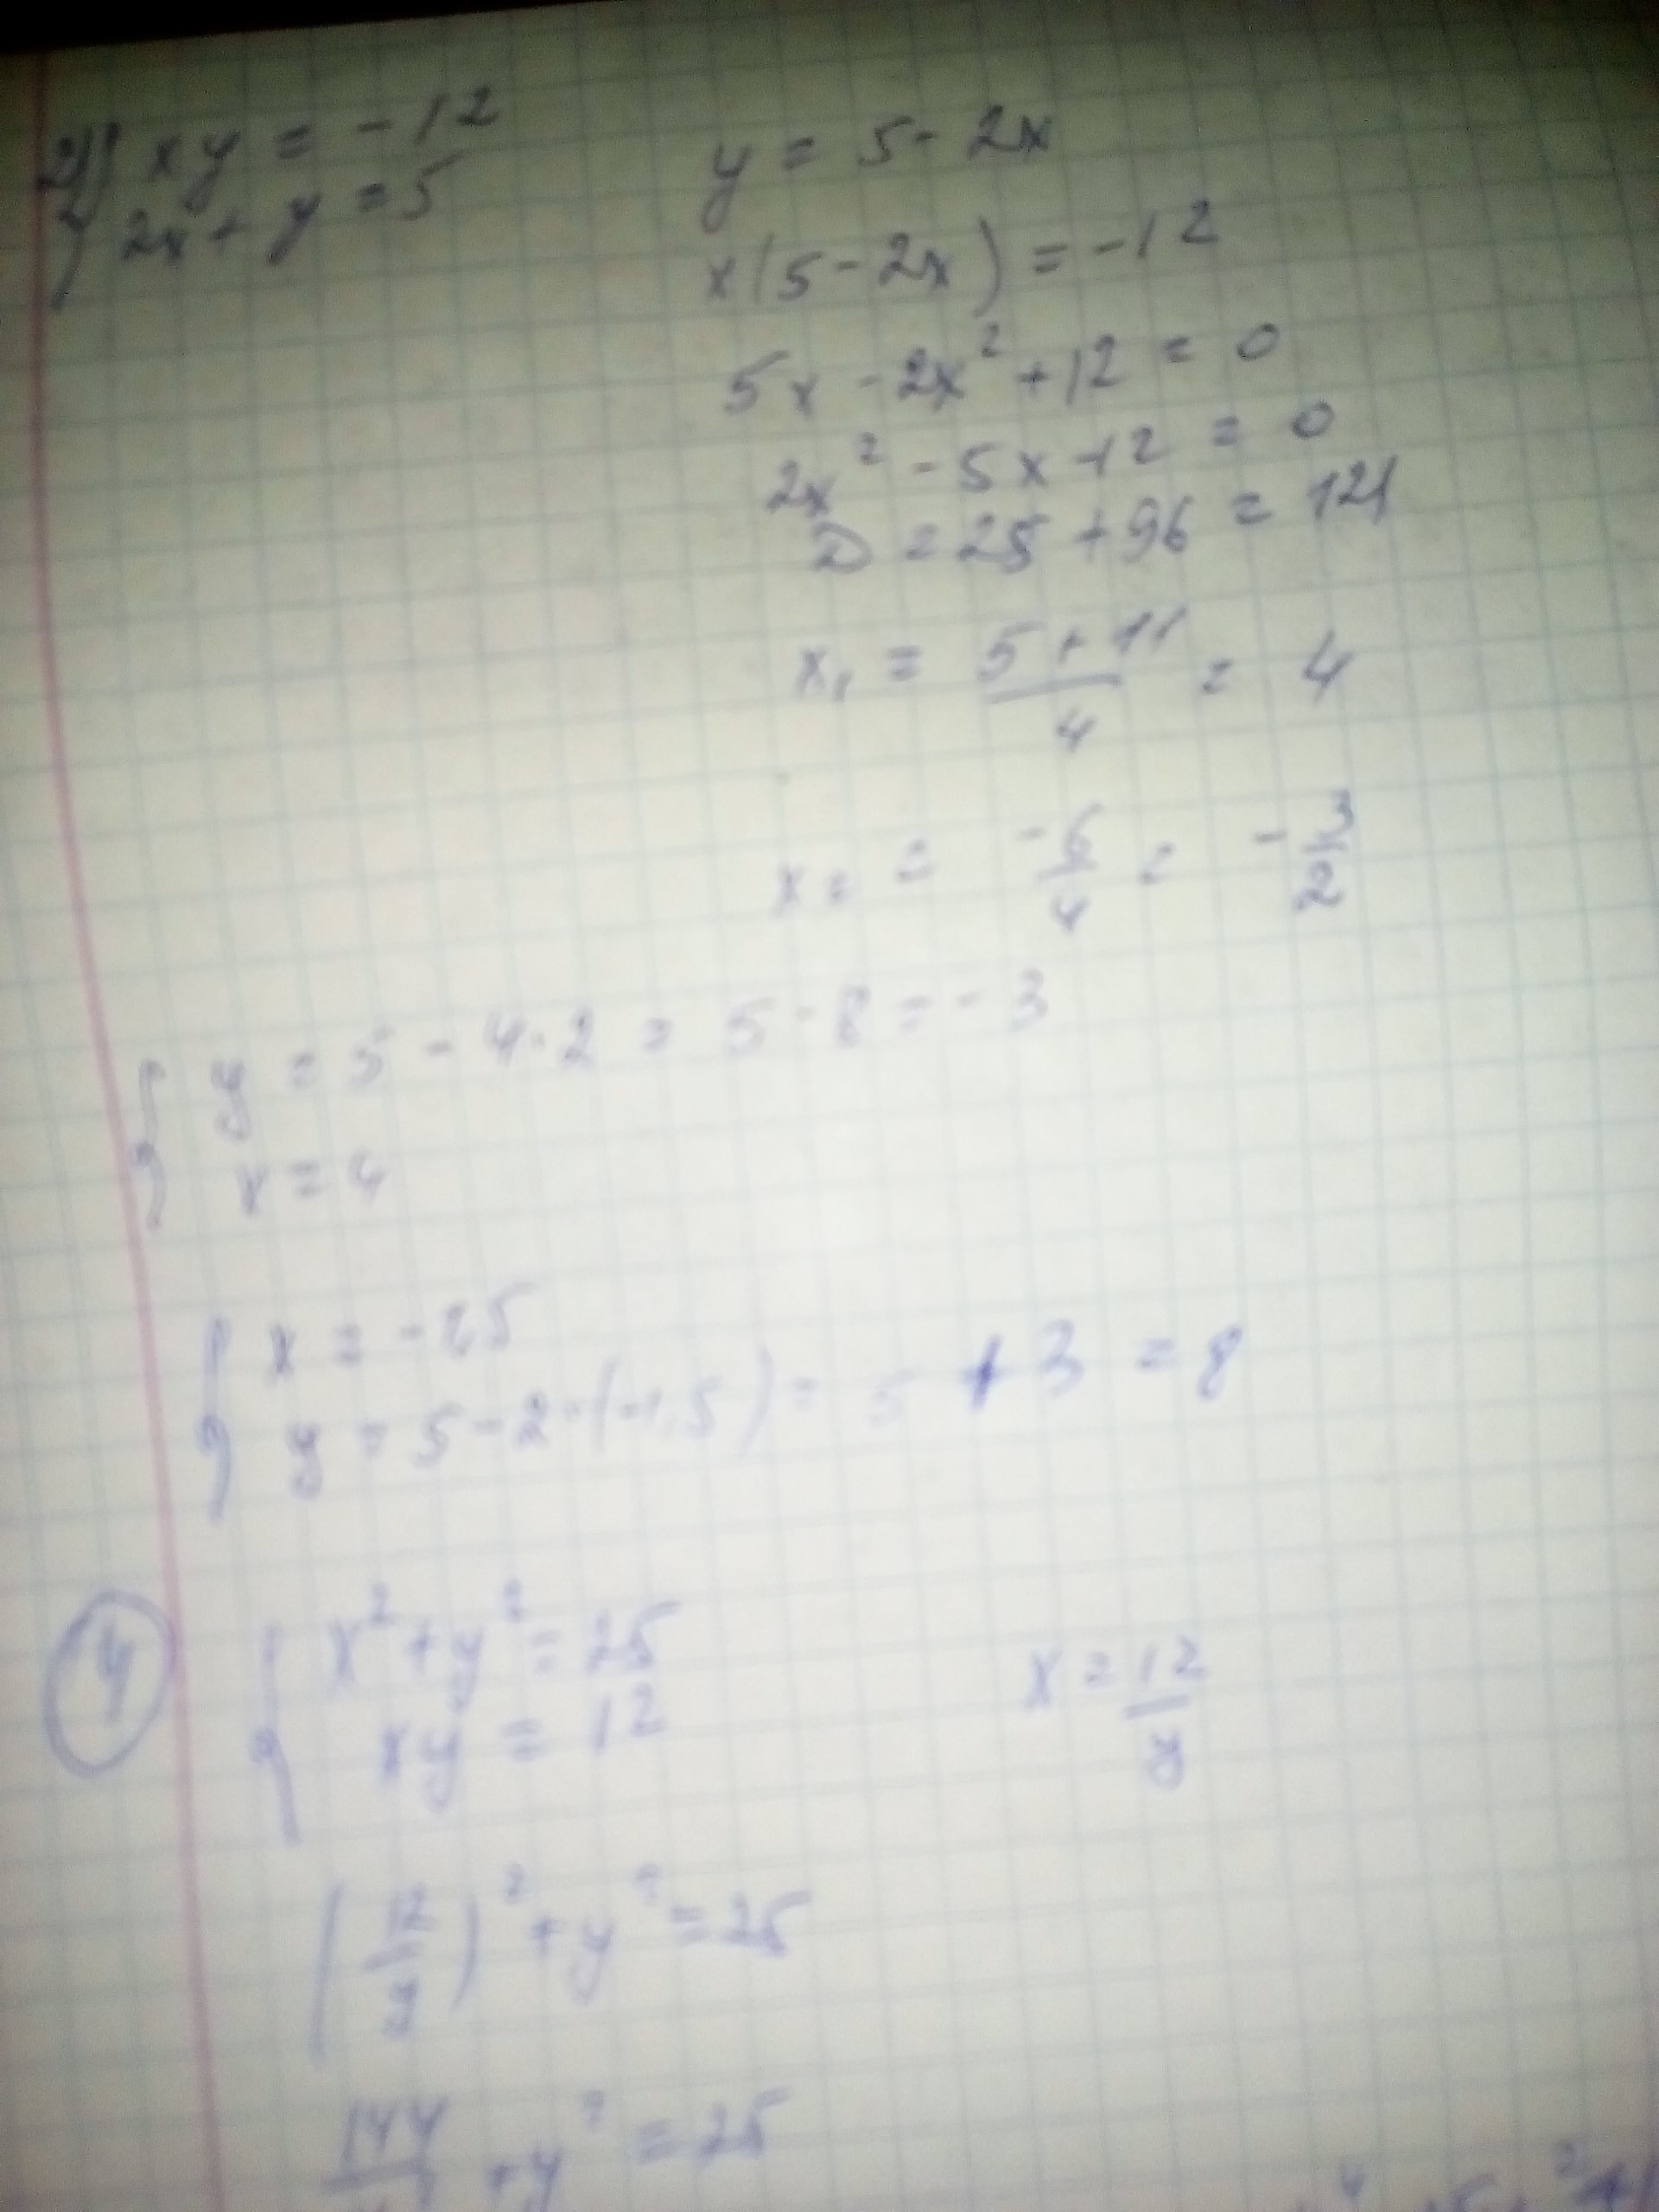 2) { xy = -12
2x + y = 5
y = 5 - 2x
x(5 - 2x) = -12
5x - 2x² + 12 = 0
2x² - 5x - 12 = 0
D = 25 + 96 = 121
x₁ = (5 + 11)/4 = 4
x₂ = -6/4 = -3/2
{ y = 5 - 4·2 = 5 - 8 = -3
x = 4
{ x = -1,5
y = 5 - 2·(-1,5) = 5 + 3 = 8
4
{ x² + y² = 25
xy = 12
x = 12/y
(12/y)² + y² = 25
144/y² + y² = 25